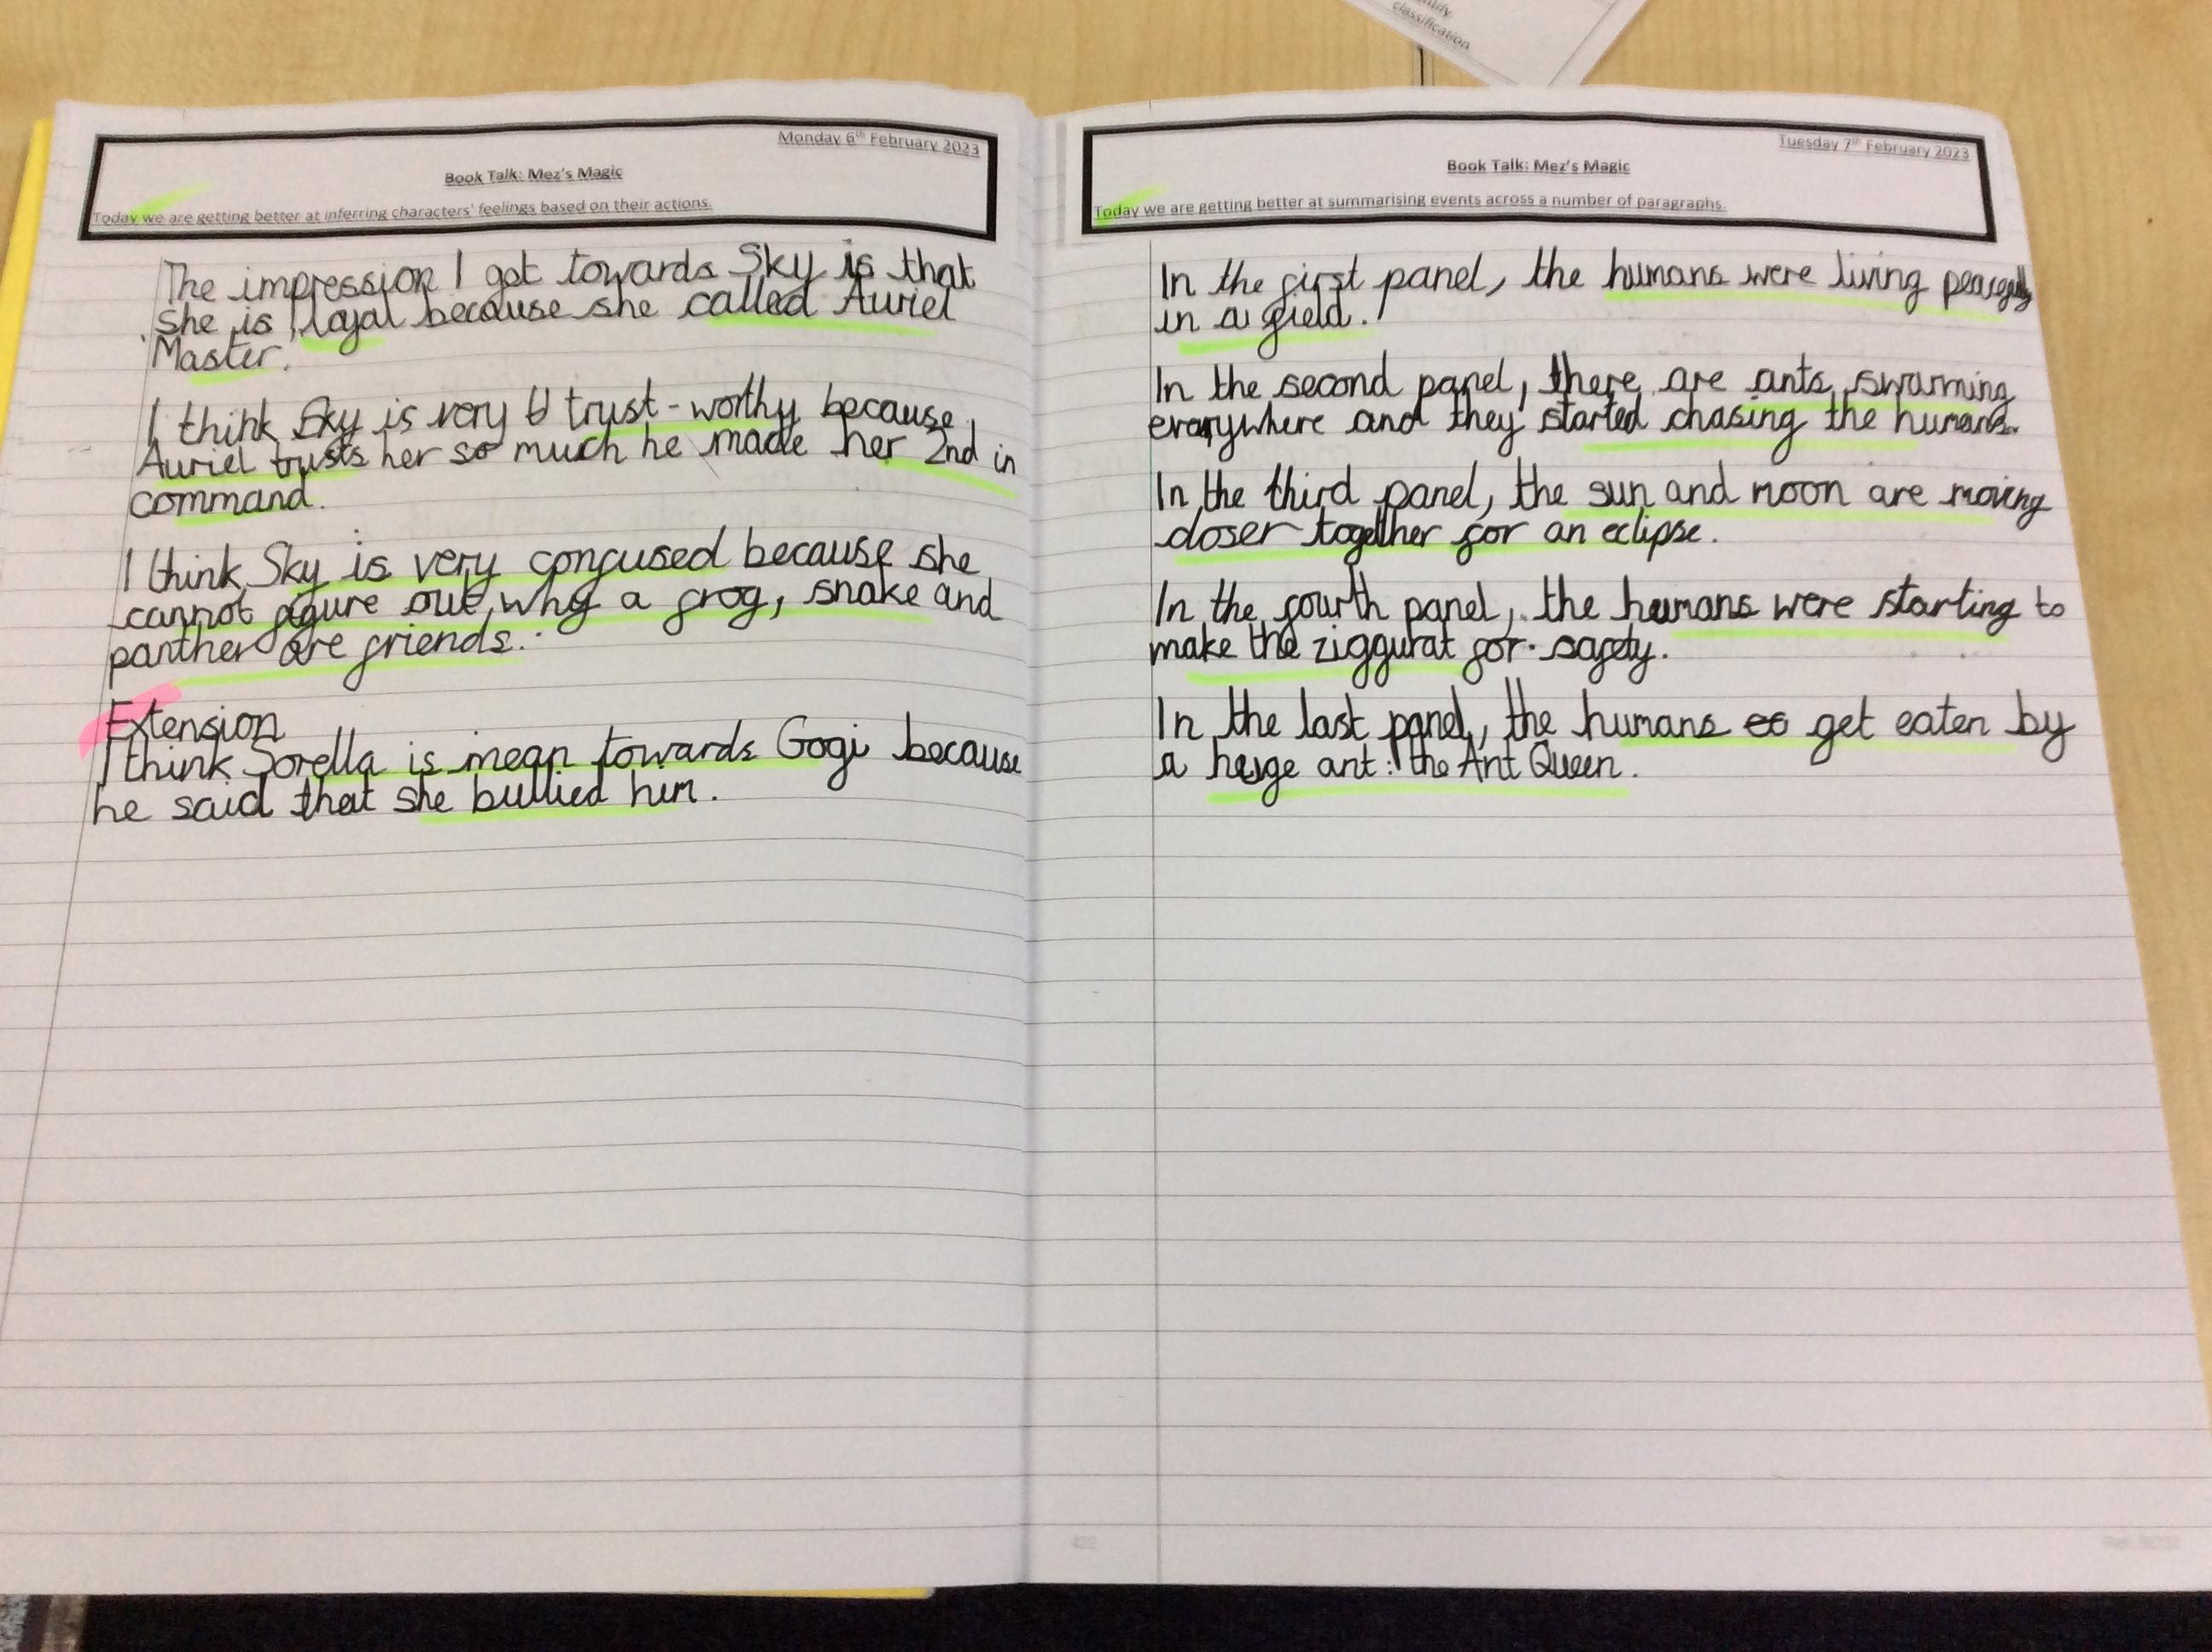 ntify
classification
Monday 6th February 2023
Book Talk: Mez's Magic
Today we are getting better at inferring characters' feelings based on their actions.
The impression I got towards Sky is that
she is loyal because she called Auriel
Master.
I think Sky is very trust-worthy because
Auriel trusts her so much he made her 2nd in
command.
I think Sky is very confused because she
cannot figure out why a frog, snake and
panther are friends.
Extension
I think Sorella is mean towards Gogi because
he said that she bullied him.
Tuesday 7th February 2023
Book Talk: Mez's Magic
Today we are getting better at summarising events across a number of paragraphs.
In the first panel, the humans were living peacefully
in a field.
In the second panel, there are ants swarming
everywhere and they started chasing the humans.
In the third panel, the sun and moon are moving
closer together for an eclipse.
In the fourth panel, the humans were starting to
make the ziggurat for safety.
In the last panel, the humans get eaten by
a huge ant: the Ant Queen.